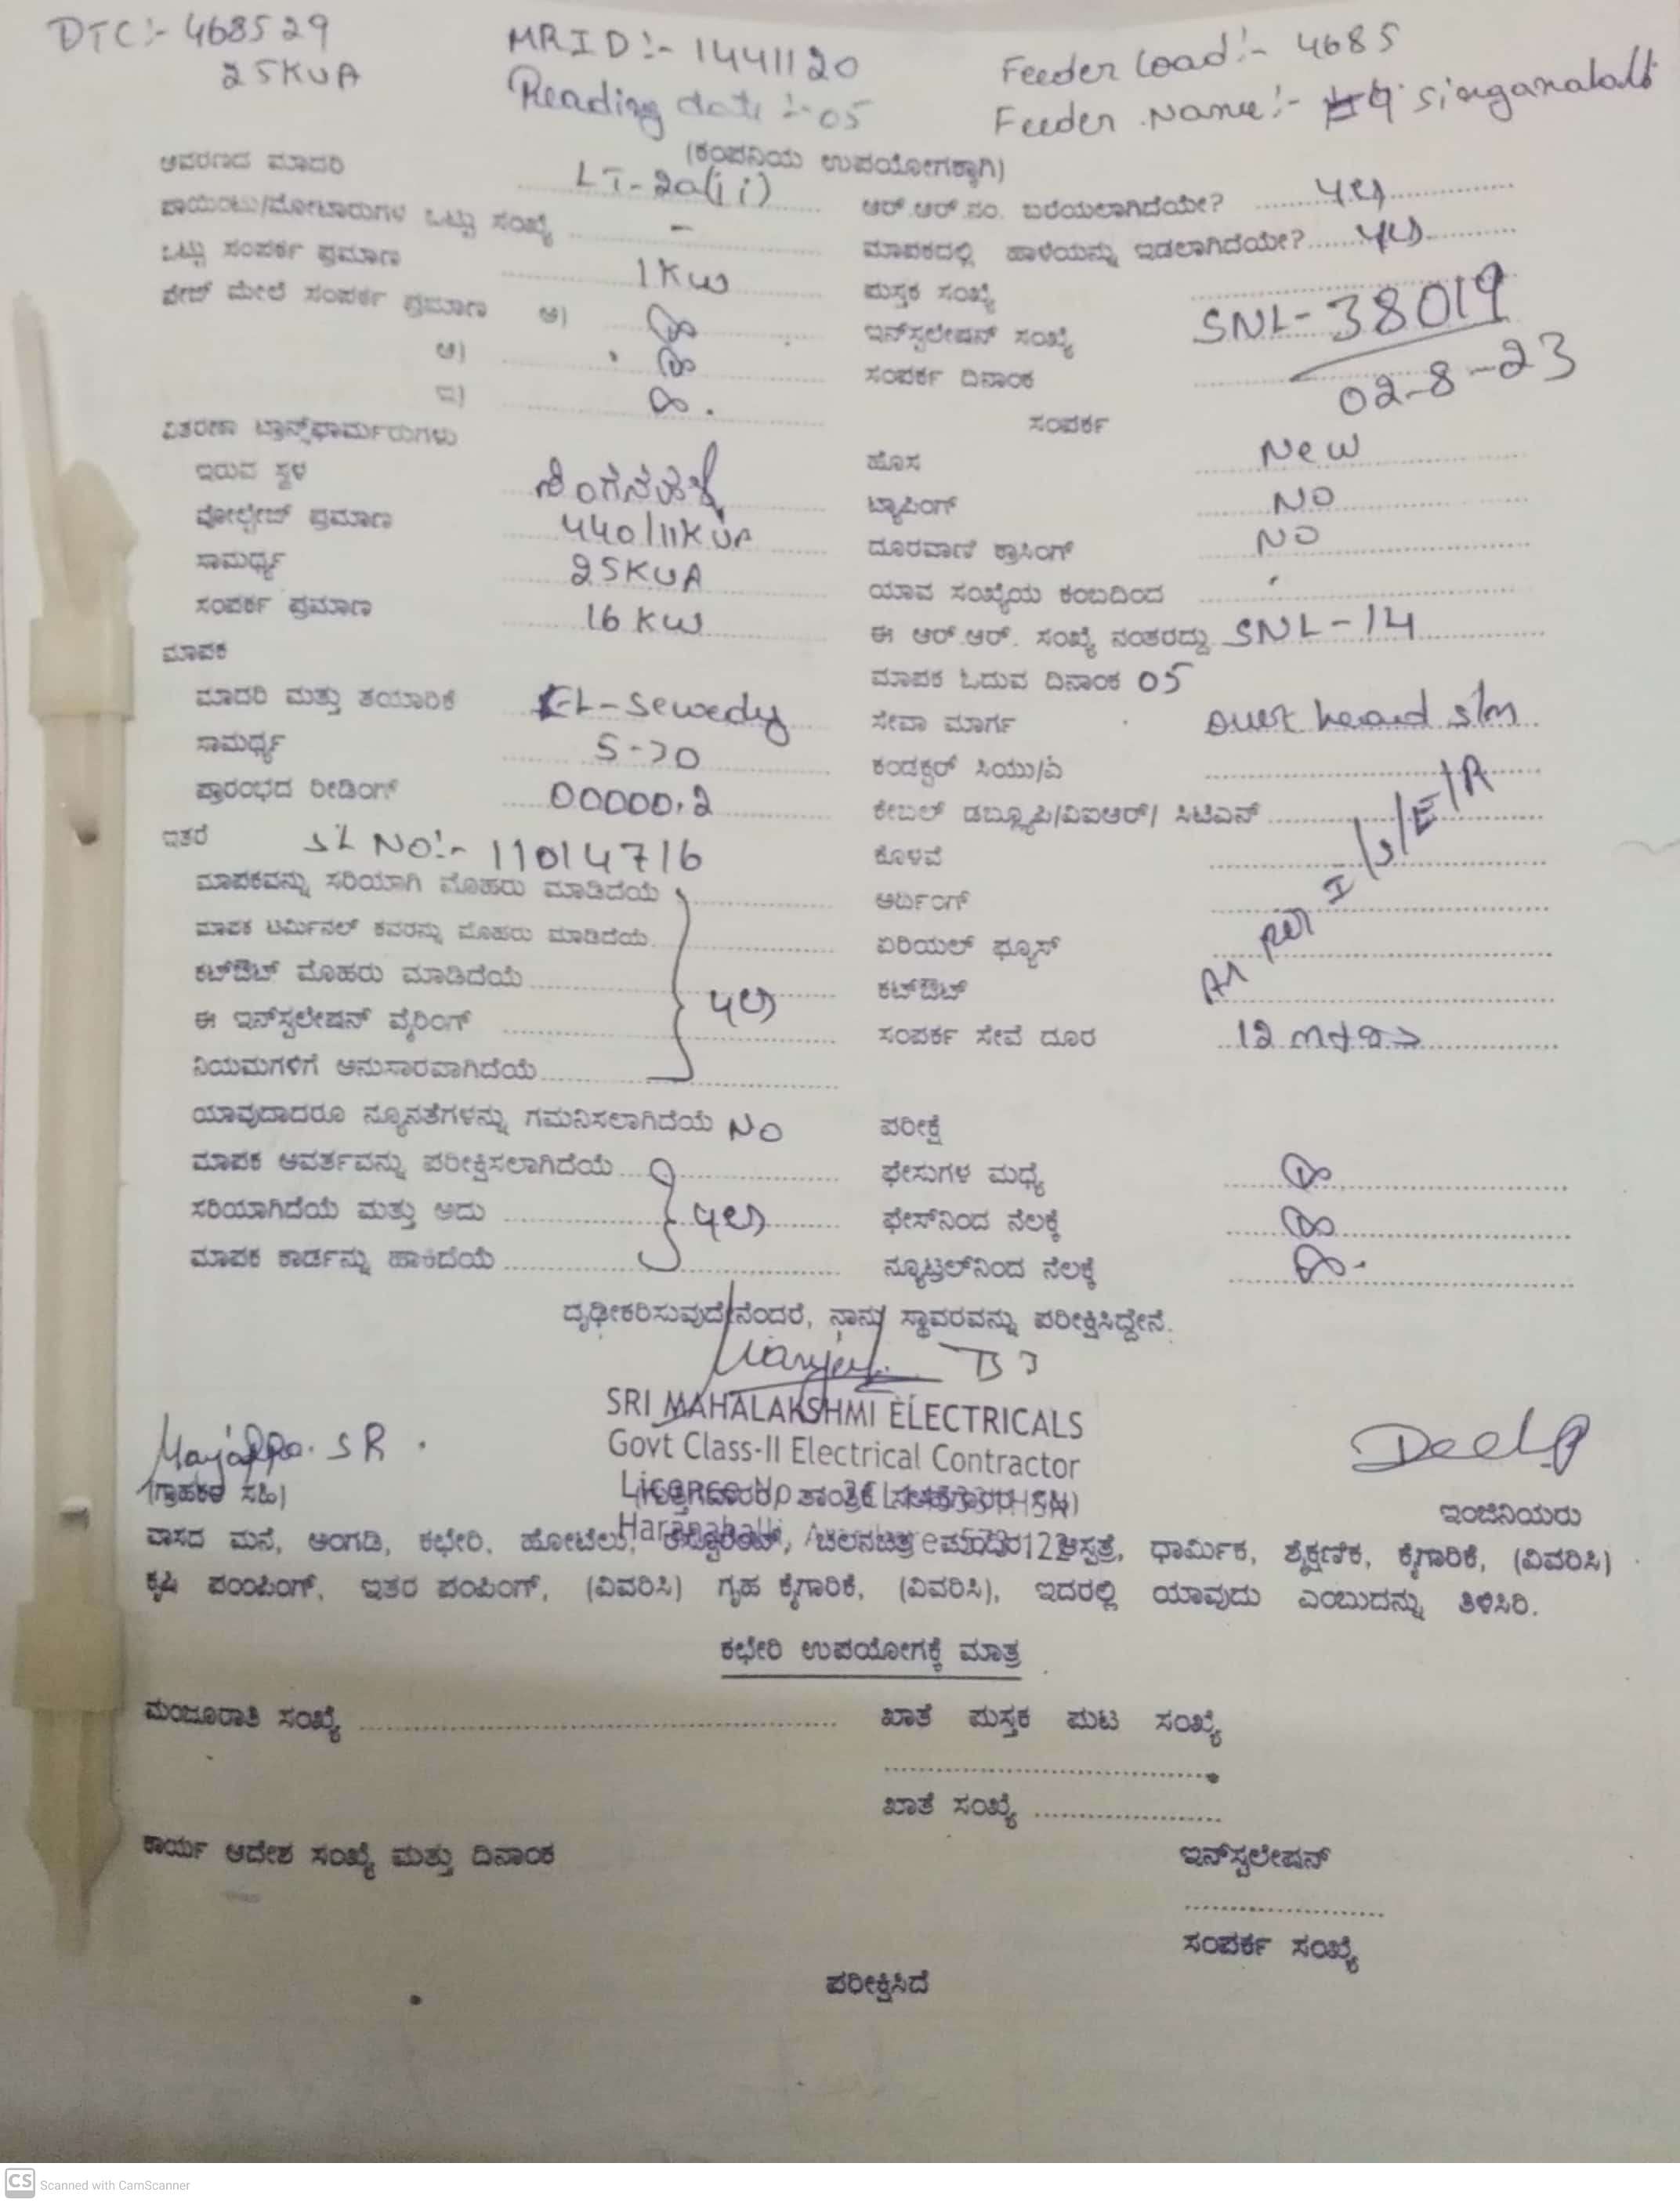 DTC:- 468529 MRID:- 1441120 Feeder Load:- 4685
25KVA Reading date:- 05 Feeder Name:- singanahalli
(ಕಂಪನಿಯ ಉಪಯೋಗಕ್ಕಾಗಿ)
ಆವರಣದ ಮಾದರಿ LT-2a(ii) ಆರ್.ಆರ್.ನಂ. ಬರೆಯಲಾಗಿದೆಯೇ? yes
ಪಾಯಿಂಟು/ಮೋಟಾರುಗಳ ಒಟ್ಟು ಸಂಖ್ಯೆ - ಮಾಪಕದಲ್ಲಿ ಹಾಳೆಯನ್ನು ಇಡಲಾಗಿದೆಯೇ? yes
ಒಟ್ಟು ಸಂಪರ್ಕ ಪ್ರಮಾಣ 1KW ಪುಸ್ತಕ ಸಂಖ್ಯೆ
ಪೇಜ್ ಮೇಲೆ ಸಂಪರ್ಕ ಪ್ರಮಾಣ ಅ) ಇನ್‌ಸ್ಟಲೇಷನ್ ಸಂಖ್ಯೆ SNL-38019
ಆ) ಸಂಪರ್ಕ ದಿನಾಂಕ 02-8-23
ಇ) ಸಂಪರ್ಕ
ವಿತರಣಾ ಟ್ರಾನ್ಸ್‌ಫಾರ್ಮರುಗಳು ಹೊಸ New
ಇರುವ ಸ್ಥಳ ಟ್ಯಾಪಿಂಗ್ NO
ವೋಲ್ಟೇಜ್ ಪ್ರಮಾಣ 440/11KVA ದೂರವಾಣಿ ಕ್ರಾಸಿಂಗ್ NO
ಸಾಮರ್ಥ್ಯ 25KVA ಯಾವ ಸಂಖ್ಯೆಯ ಕಂಬದಿಂದ
ಸಂಪರ್ಕ ಪ್ರಮಾಣ 16 KW ಈ ಆರ್.ಆರ್. ಸಂಖ್ಯೆ ನಂತರದ್ದು SNL-14
ಮಾಪಕ ಮಾಪಕ ಓದುವ ದಿನಾಂಕ 05
ಮಾದರಿ ಮತ್ತು ತಯಾರಿಕೆ EL-Sewedy ಸೇವಾ ಮಾರ್ಗ over head s/m
ಸಾಮರ್ಥ್ಯ 5-20 ಕಂಡಕ್ಟರ್ ಸಿಯು/ಎ
ಪ್ರಾರಂಭದ ರೀಡಿಂಗ್ 00000.2 ಕೇಬಲ್ ಡಬ್ಲ್ಯೂಪಿ/ವಿಐಆರ್/ ಸಿಟಿಎಸ್
ಇತರೆ SL NO:- 11014716 ಕೊಳವೆ
ಮಾಪಕವನ್ನು ಸರಿಯಾಗಿ ಮೊಹರು ಮಾಡಿದೆಯೆ ಅರ್ದಿಂಗ್ As per I/S/E/R
ಮಾಪಕ ಟರ್ಮಿನಲ್ ಕವರನ್ನು ಮೊಹರು ಮಾಡಿದೆಯೆ ಏರಿಯಲ್ ಫ್ಯೂಸ್
ಕಟ್‌ಔಟ್ ಮೊಹರು ಮಾಡಿದೆಯೆ yes ಕಟ್‌ಔಟ್
ಈ ಇನ್‌ಸ್ಟಲೇಷನ್ ವೈರಿಂಗ್ ಸಂಪರ್ಕ ಸೇವೆ ದೂರ 12 mtrs
ನಿಯಮಗಳಿಗೆ ಅನುಸಾರವಾಗಿದೆಯೆ
ಯಾವುದಾದರೂ ನ್ಯೂನತೆಗಳನ್ನು ಗಮನಿಸಲಾಗಿದೆಯೆ NO ಪರೀಕ್ಷೆ
ಮಾಪಕ ಆವರ್ತವನ್ನು ಪರೀಕ್ಷಿಸಲಾಗಿದೆಯೆ ಫೇಸುಗಳ ಮಧ್ಯೆ
ಸರಿಯಾಗಿದೆಯೆ ಮತ್ತು ಅದು yes ಫೇಸ್‌ನಿಂದ ನೆಲಕ್ಕೆ
ಮಾಪಕ ಕಾರ್ಡನ್ನು ಹಾಕಿದೆಯೆ ನ್ಯೂಟ್ರಲ್‌ನಿಂದ ನೆಲಕ್ಕೆ
ದೃಢೀಕರಿಸುವುದೇನೆಂದರೆ, ನಾನು ಸ್ಥಾವರವನ್ನು ಪರೀಕ್ಷಿಸಿದ್ದೇನೆ.
SRI MAHALAKSHMI ELECTRICALS
Govt Class-II Electrical Contractor
(ಗ್ರಾಹಕರ ಸಹಿ) ಇಂಜಿನಿಯರು
ವಾಸದ ಮನೆ, ಅಂಗಡಿ, ಕಛೇರಿ, ಹೋಟೆಲು, ರೆಸ್ಟೊರೆಂಟ್, ಚಲನಚಿತ್ರ ಮಂದಿರ ಆಸ್ಪತ್ರೆ, ಧಾರ್ಮಿಕ, ಶೈಕ್ಷಣಿಕ, ಕೈಗಾರಿಕೆ, (ವಿವರಿಸಿ)
ಕೃಷಿ ಪಂಪಿಂಗ್, ಇತರ ಪಂಪಿಂಗ್, (ವಿವರಿಸಿ) ಗೃಹ ಕೈಗಾರಿಕೆ, (ವಿವರಿಸಿ), ಇದರಲ್ಲಿ ಯಾವುದು ಎಂಬುದನ್ನು ತಿಳಿಸಿರಿ.
ಕಛೇರಿ ಉಪಯೋಗಕ್ಕೆ ಮಾತ್ರ
ಮಂಜೂರಾತಿ ಸಂಖ್ಯೆ ಖಾತೆ ಪುಸ್ತಕ ಪುಟ ಸಂಖ್ಯೆ
ಖಾತೆ ಸಂಖ್ಯೆ
ಕಾರ್ಯ ಆದೇಶ ಸಂಖ್ಯೆ ಮತ್ತು ದಿನಾಂಕ ಇನ್‌ಸ್ಟಲೇಷನ್
ಸಂಪರ್ಕ ಸಂಖ್ಯೆ
ಪರೀಕ್ಷಿಸಿದೆ
CS Scanned with CamScanner